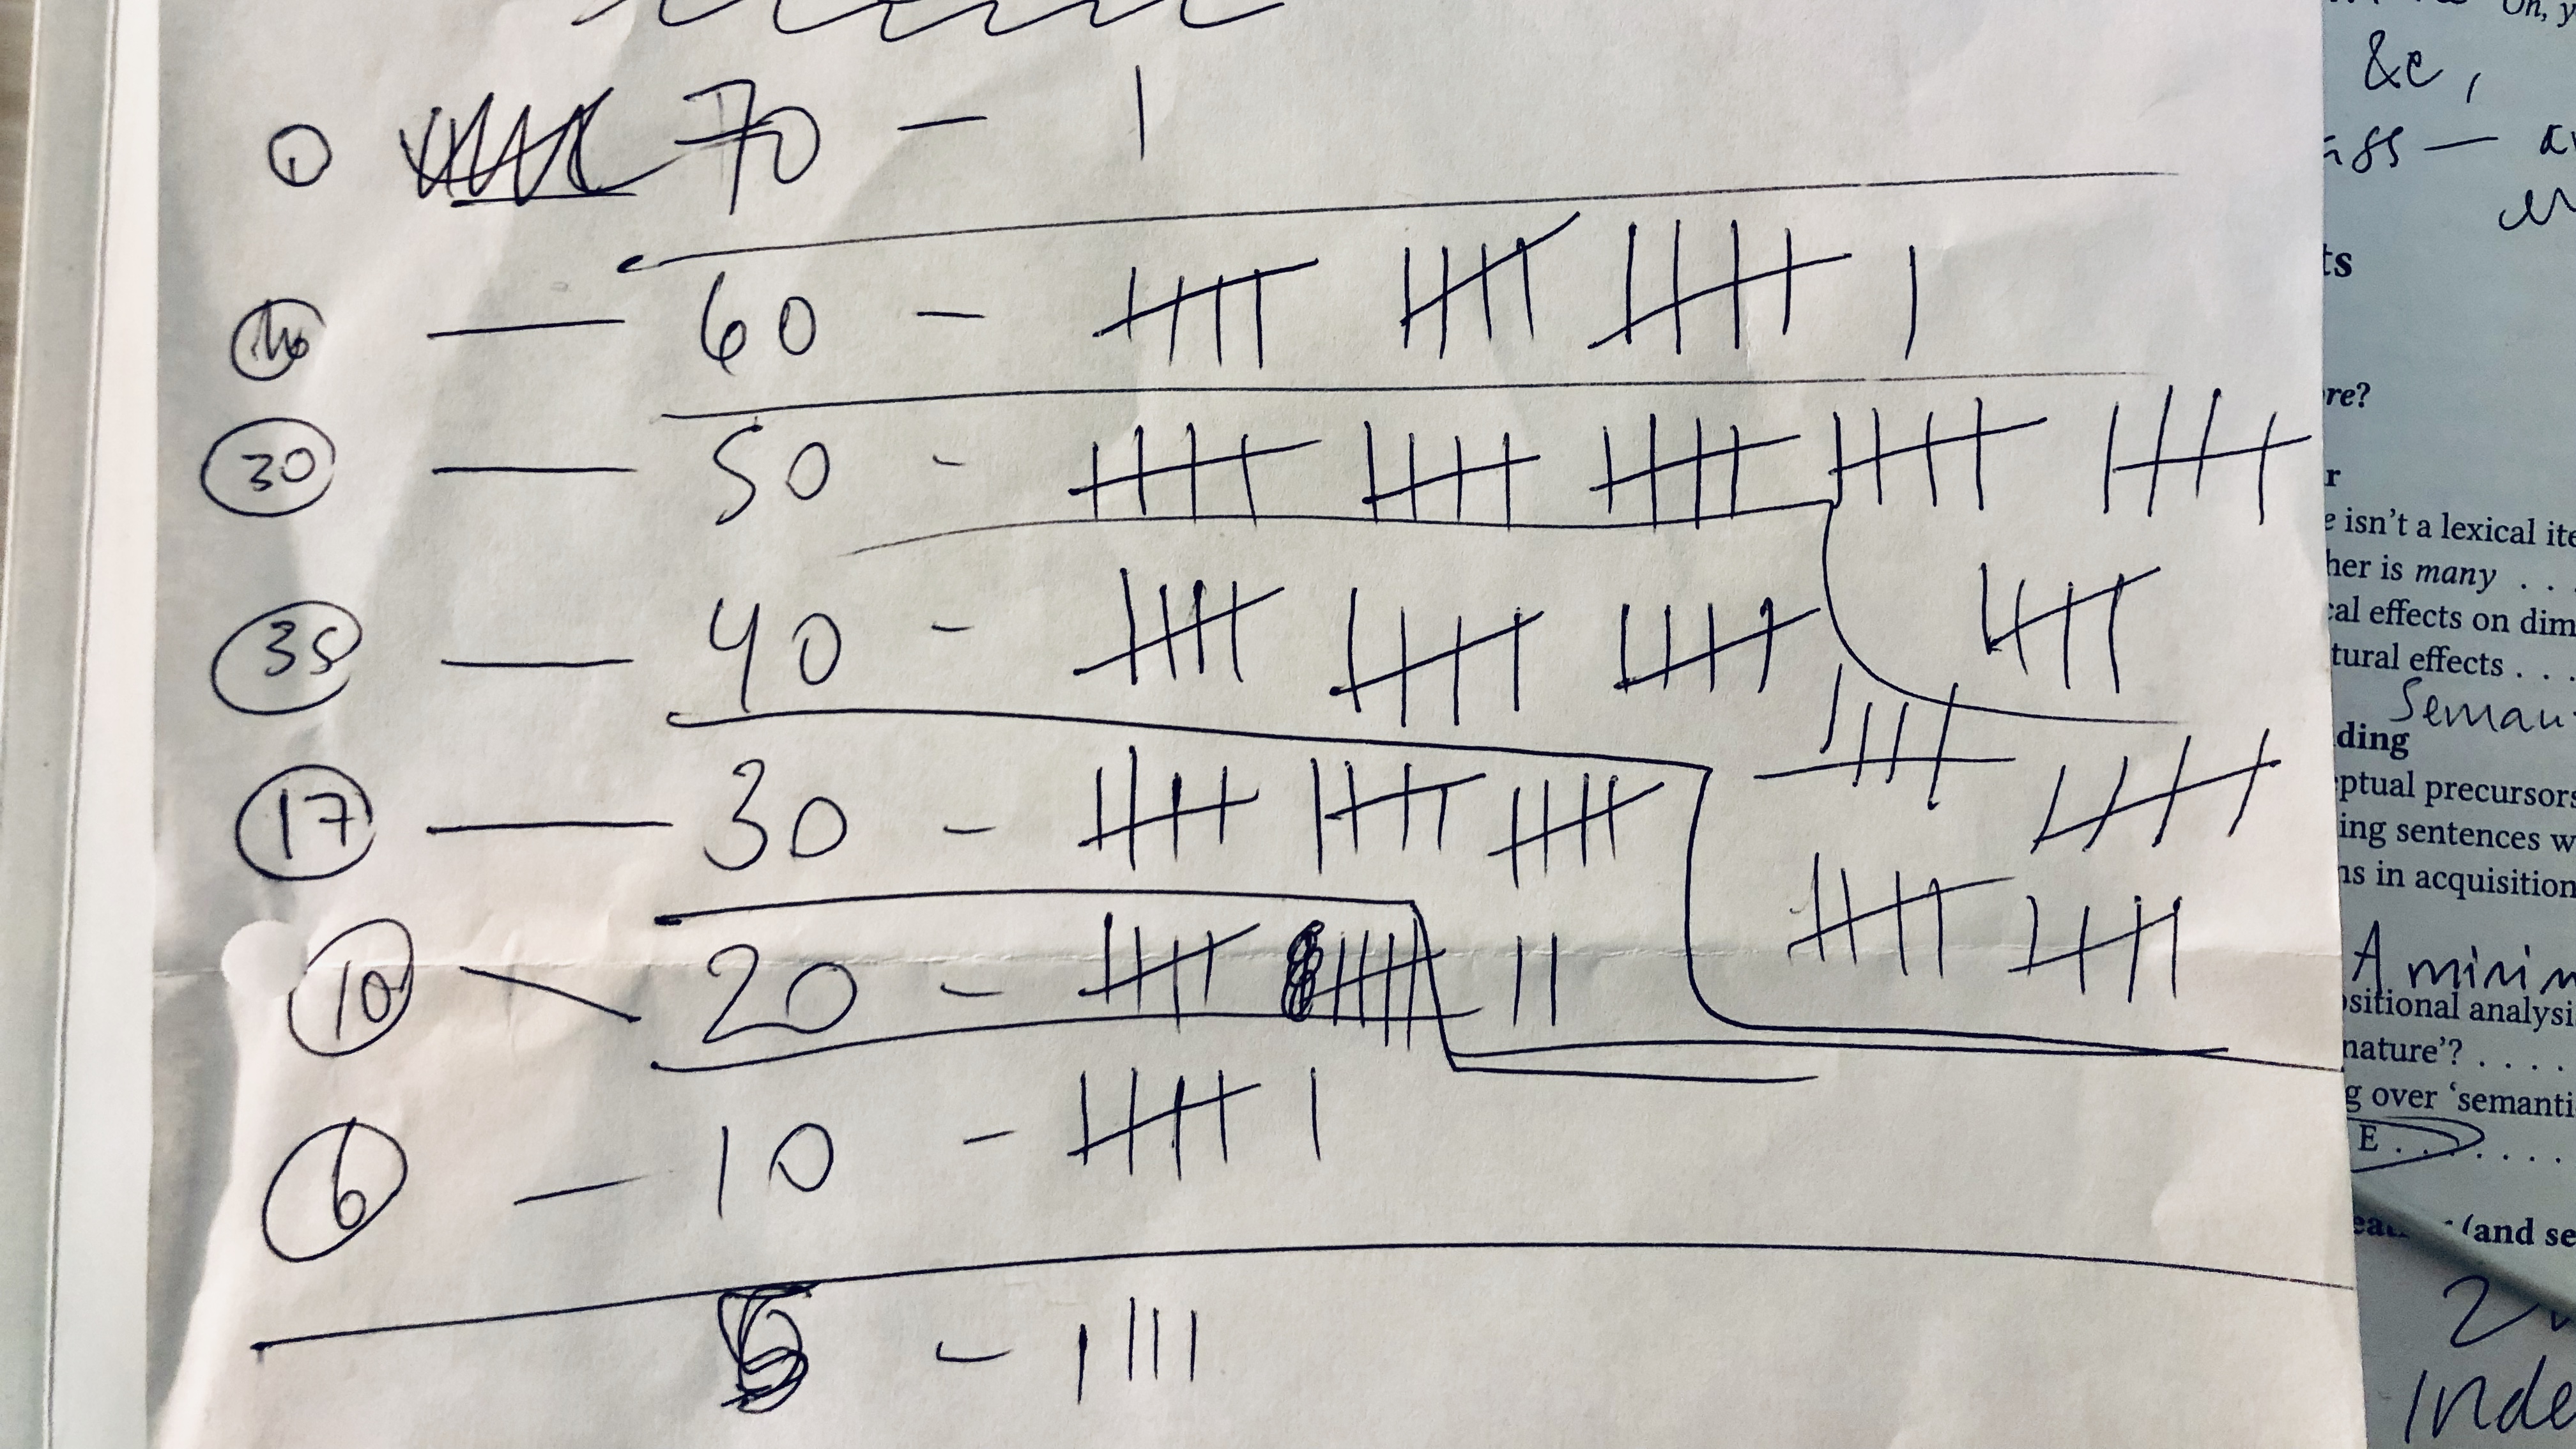 1 70 - |
16 — 60 - 𝍸 𝍸 𝍸 |
30 — 50 - 𝍸 𝍸 𝍸 𝍸 𝍸
𝍸
35 — 40 - 𝍸 𝍸 𝍸
𝍸 𝍸
𝍸 𝍸
17 — 30 - 𝍸 𝍸 𝍸
||
10 — 20 - 𝍸 𝍸
6 — 10 - 𝍸 |
5 - ||||
Oh, y
&c,
ts
re?
r
e isn't a lexical ite
her is many . . .
cal effects on dim
tural effects . . .
Seman
ding
ptual precursors
ing sentences w
ns in acquisition
A minim
ositional analysi
nature'? . . . .
g over 'semanti
E . . . . . . .
(and se
2
Inde